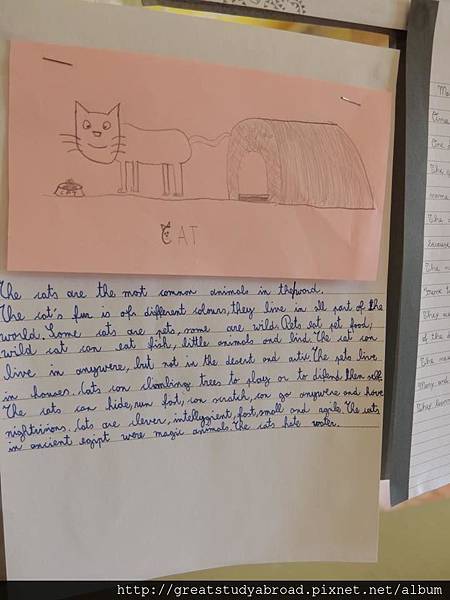 CAT
The cats are the most common animals in theword.
The cat's fur is ofn different colours, they live in all part of the
world. Some cats are pets, some are wild. Pets eat pet food,
wild cat can eat fish, little animals and bird. The cat can
live in anywere, but not in the desert and artic. The pets live
in houses. Cats can climbing trees to play or to difend them self.
The cats can hide, run fast, can scratch, can go anywere, and have
nightvivions. Cats are clever, intellegient, fast, small and agile. The cats
in ancient egipt were magic animals. The cats hate water.
http://greatstudyabroad.pixnet.net/album